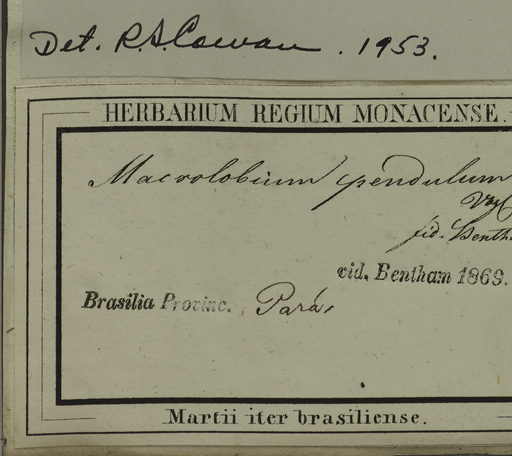 Det. R.S. Cowan. 1953.
HERBARIUM REGIUM MONACENSE.
Macrolobium pendulum
fid. Benth
vid. Bentham 1869.
Brasilia Provinc. Pará,
Martii iter brasiliense.